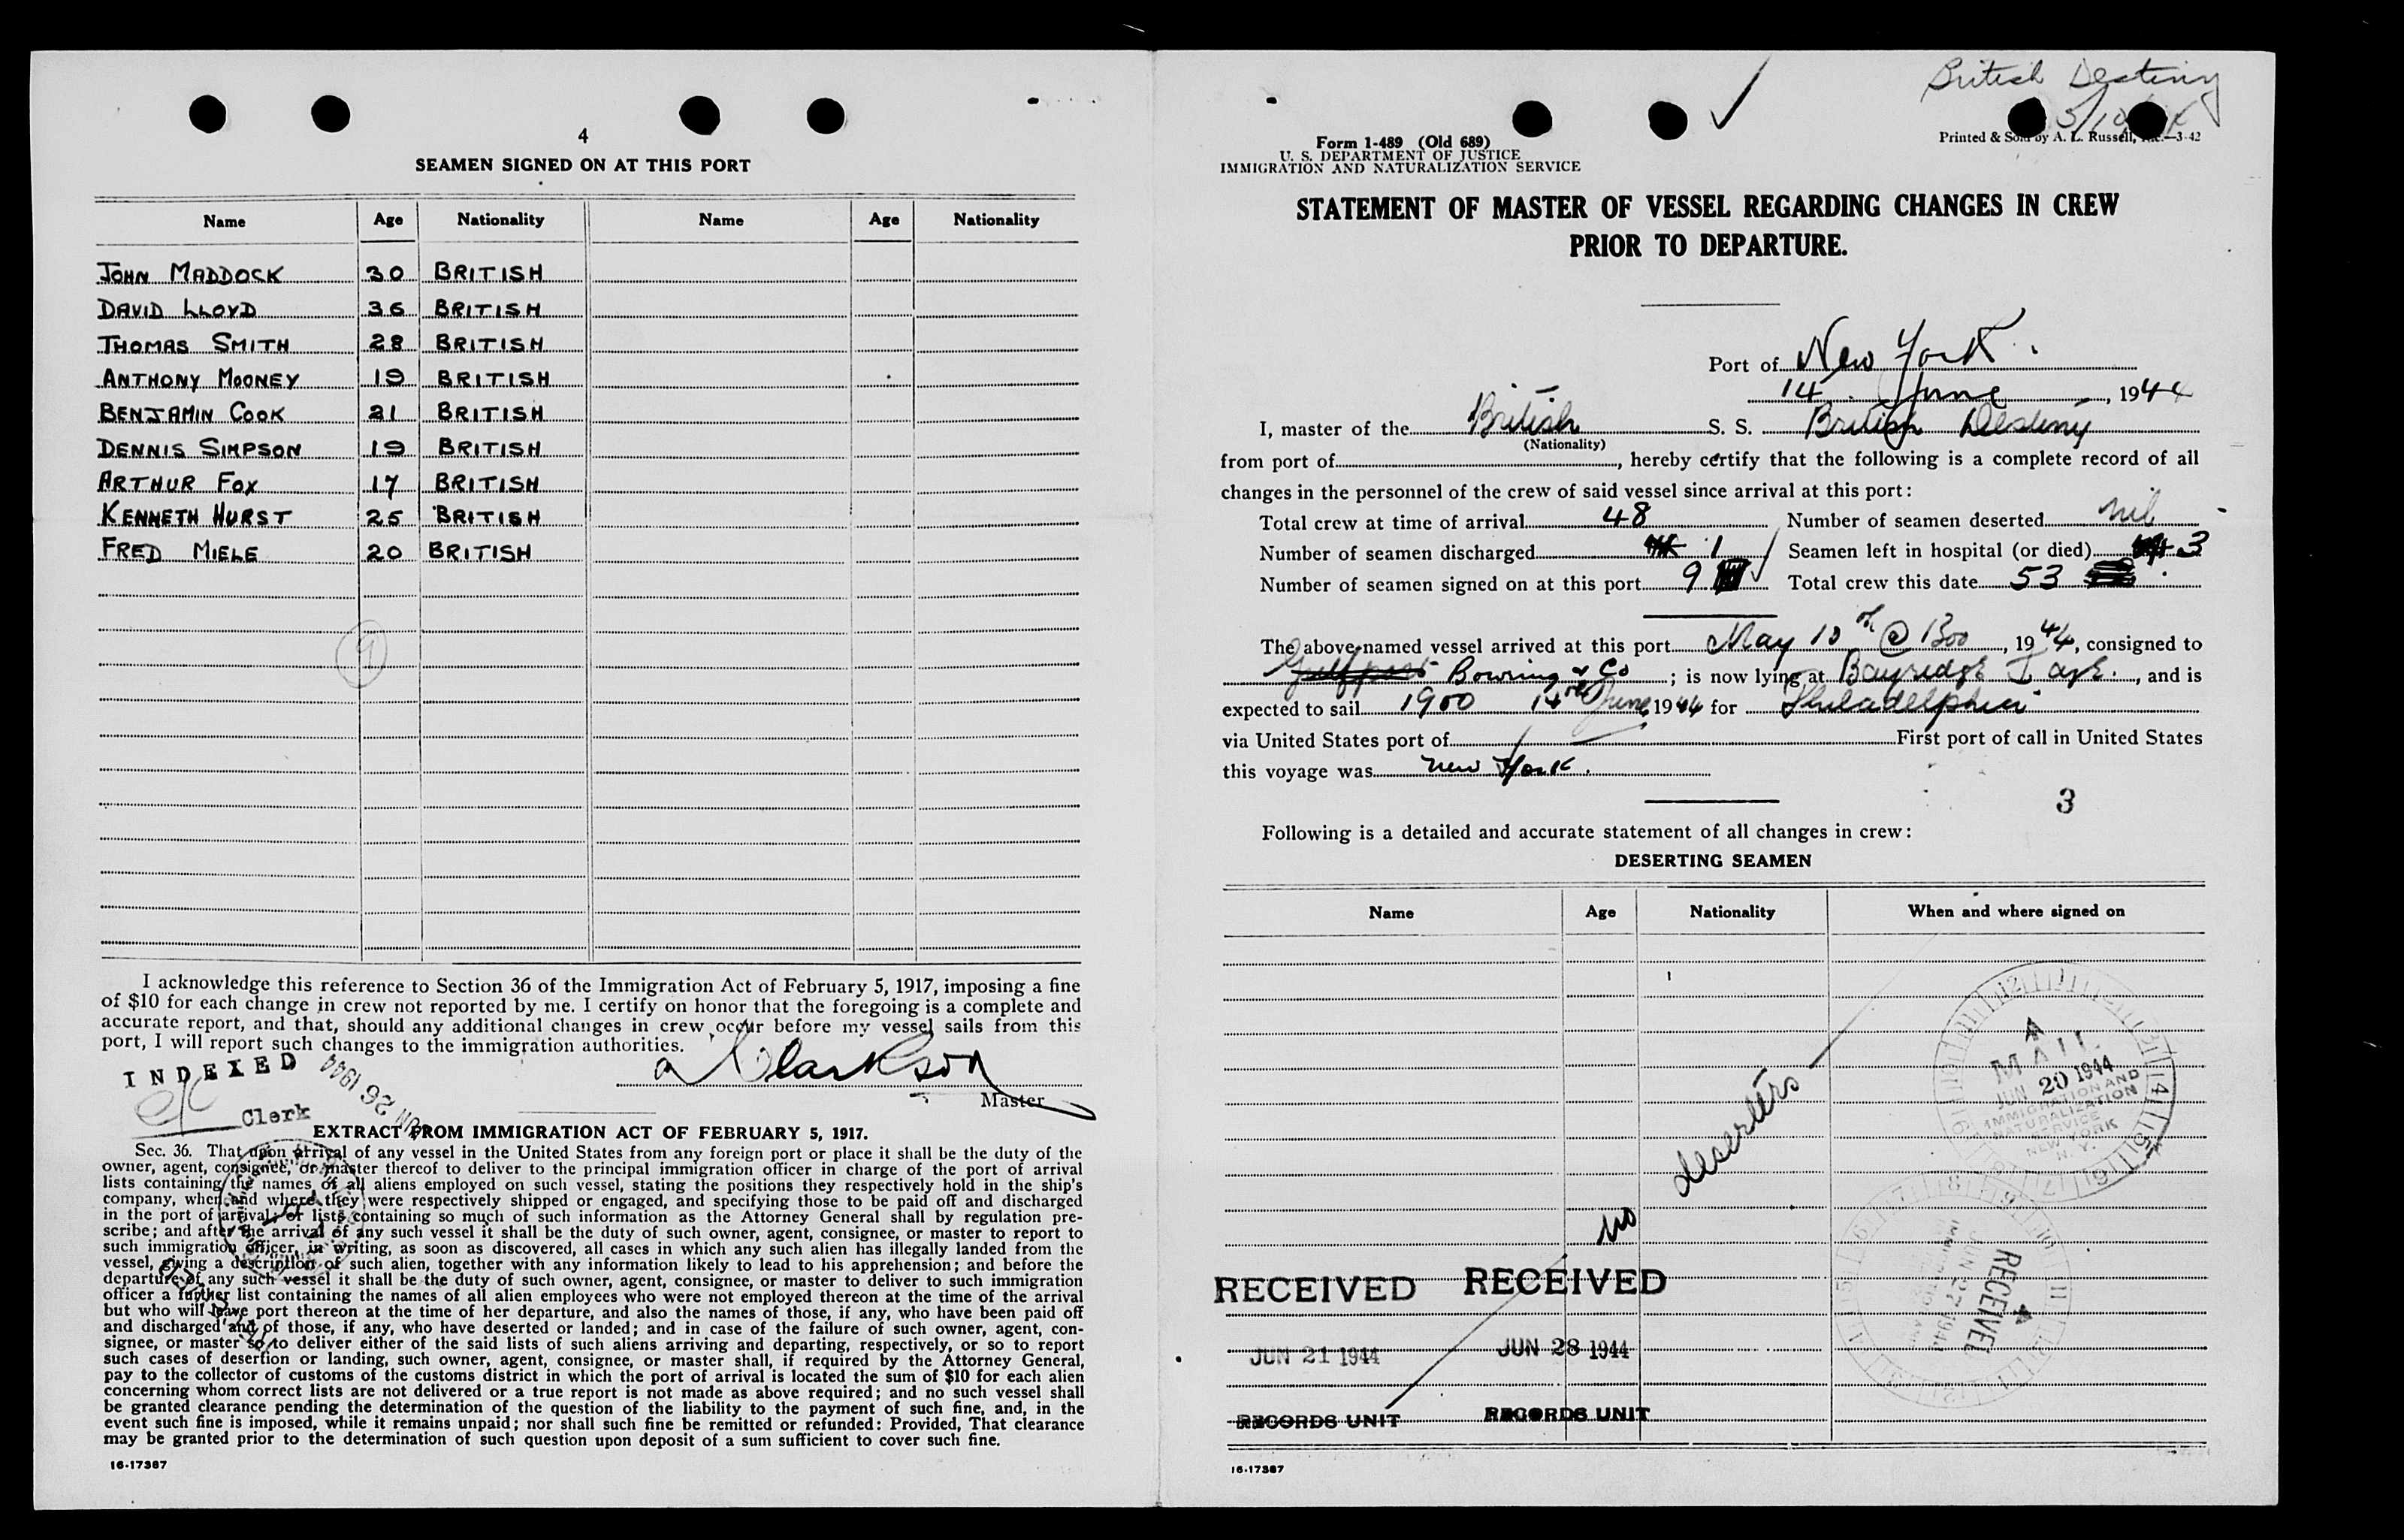 4
SEAMEN SIGNED ON AT THIS PORT
Name Age Nationality Name Age Nationality
JOHN MADDOCK 30 BRITISH
DAVID LLOYD 36 BRITISH
THOMAS SMITH 28 BRITISH
ANTHONY MOONEY 19 BRITISH
BENJAMIN COOK 21 BRITISH
DENNIS SIMPSON 19 BRITISH
ARTHUR FOX 17 BRITISH
KENNETH HURST 25 BRITISH
FRED MIELE 20 BRITISH
9
I acknowledge this reference to Section 36 of the Immigration Act of February 5, 1917, imposing a fine
of $10 for each change in crew not reported by me. I certify on honor that the foregoing is a complete and
accurate report, and that, should any additional changes in crew occur before my vessel sails from this
port, I will report such changes to the immigration authorities.
INDEXED
JUN 26 1944
a Clarkson
Master
Clerk
EXTRACT FROM IMMIGRATION ACT OF FEBRUARY 5, 1917.
Sec. 36. That upon arrival of any vessel in the United States from any foreign port or place it shall be the duty of the
owner, agent, consignee, or master thereof to deliver to the principal immigration officer in charge of the port of arrival
lists containing the names of all aliens employed on such vessel, stating the positions they respectively hold in the ship's
company, when and where they were respectively shipped or engaged, and specifying those to be paid off and discharged
in the port of arrival; or lists containing so much of such information as the Attorney General shall by regulation pre-
scribe; and after the arrival of any such vessel it shall be the duty of such owner, agent, consignee, or master to report to
such immigration officer, in writing, as soon as discovered, all cases in which any such alien has illegally landed from the
vessel, giving a description of such alien, together with any information likely to lead to his apprehension; and before the
departure of any such vessel it shall be the duty of such owner, agent, consignee, or master to deliver to such immigration
officer a further list containing the names of all alien employees who were not employed thereon at the time of the arrival
but who will leave port thereon at the time of her departure, and also the names of those, if any, who have been paid off
and discharged and of those, if any, who have deserted or landed; and in case of the failure of such owner, agent, con-
signee, or master so to deliver either of the said lists of such aliens arriving and departing, respectively, or so to report
such cases of desertion or landing, such owner, agent, consignee, or master shall, if required by the Attorney General,
pay to the collector of customs of the customs district in which the port of arrival is located the sum of $10 for each alien
concerning whom correct lists are not delivered or a true report is not made as above required; and no such vessel shall
be granted clearance pending the determination of the question of the liability to the payment of such fine, and, in the
event such fine is imposed, while it remains unpaid; nor shall such fine be remitted or refunded: Provided, That clearance
may be granted prior to the determination of such question upon deposit of a sum sufficient to cover such fine.
16-17387
British Destiny
Form 1-489 (Old 689)
U. S. DEPARTMENT OF JUSTICE
IMMIGRATION AND NATURALIZATION SERVICE
Printed & Sold by A. L. Russell, Inc.—3-42
STATEMENT OF MASTER OF VESSEL REGARDING CHANGES IN CREW
PRIOR TO DEPARTURE.
Port of New York.
14 June, 1944
I, master of the British S. S. British Destiny
(Nationality)
from port of, hereby certify that the following is a complete record of all
changes in the personnel of the crew of said vessel since arrival at this port:
Total crew at time of arrival 48 Number of seamen deserted nil
Number of seamen discharged 1 Seamen left in hospital (or died) 3
Number of seamen signed on at this port 9 Total crew this date 53
The above-named vessel arrived at this port May 10th @ 1300, 1944, consigned to
Bowring & Co; is now lying at Bayridge, and is
expected to sail 1900 14th June 1944 for Philadelphia
via United States port of First port of call in United States
this voyage was New York.
3
Following is a detailed and accurate statement of all changes in crew:
DESERTING SEAMEN
Name Age Nationality When and where signed on
no deserters
MAIL
JUN 20 1944
IMMIGRATION AND
NATURALIZATION
SERVICE
NEW YORK
N. Y.
RECEIVED
JUN 27 1944
RECEIVED RECEIVED
JUN 21 1944 JUN 28 1944
RECORDS UNIT RECORDS UNIT
16-17387